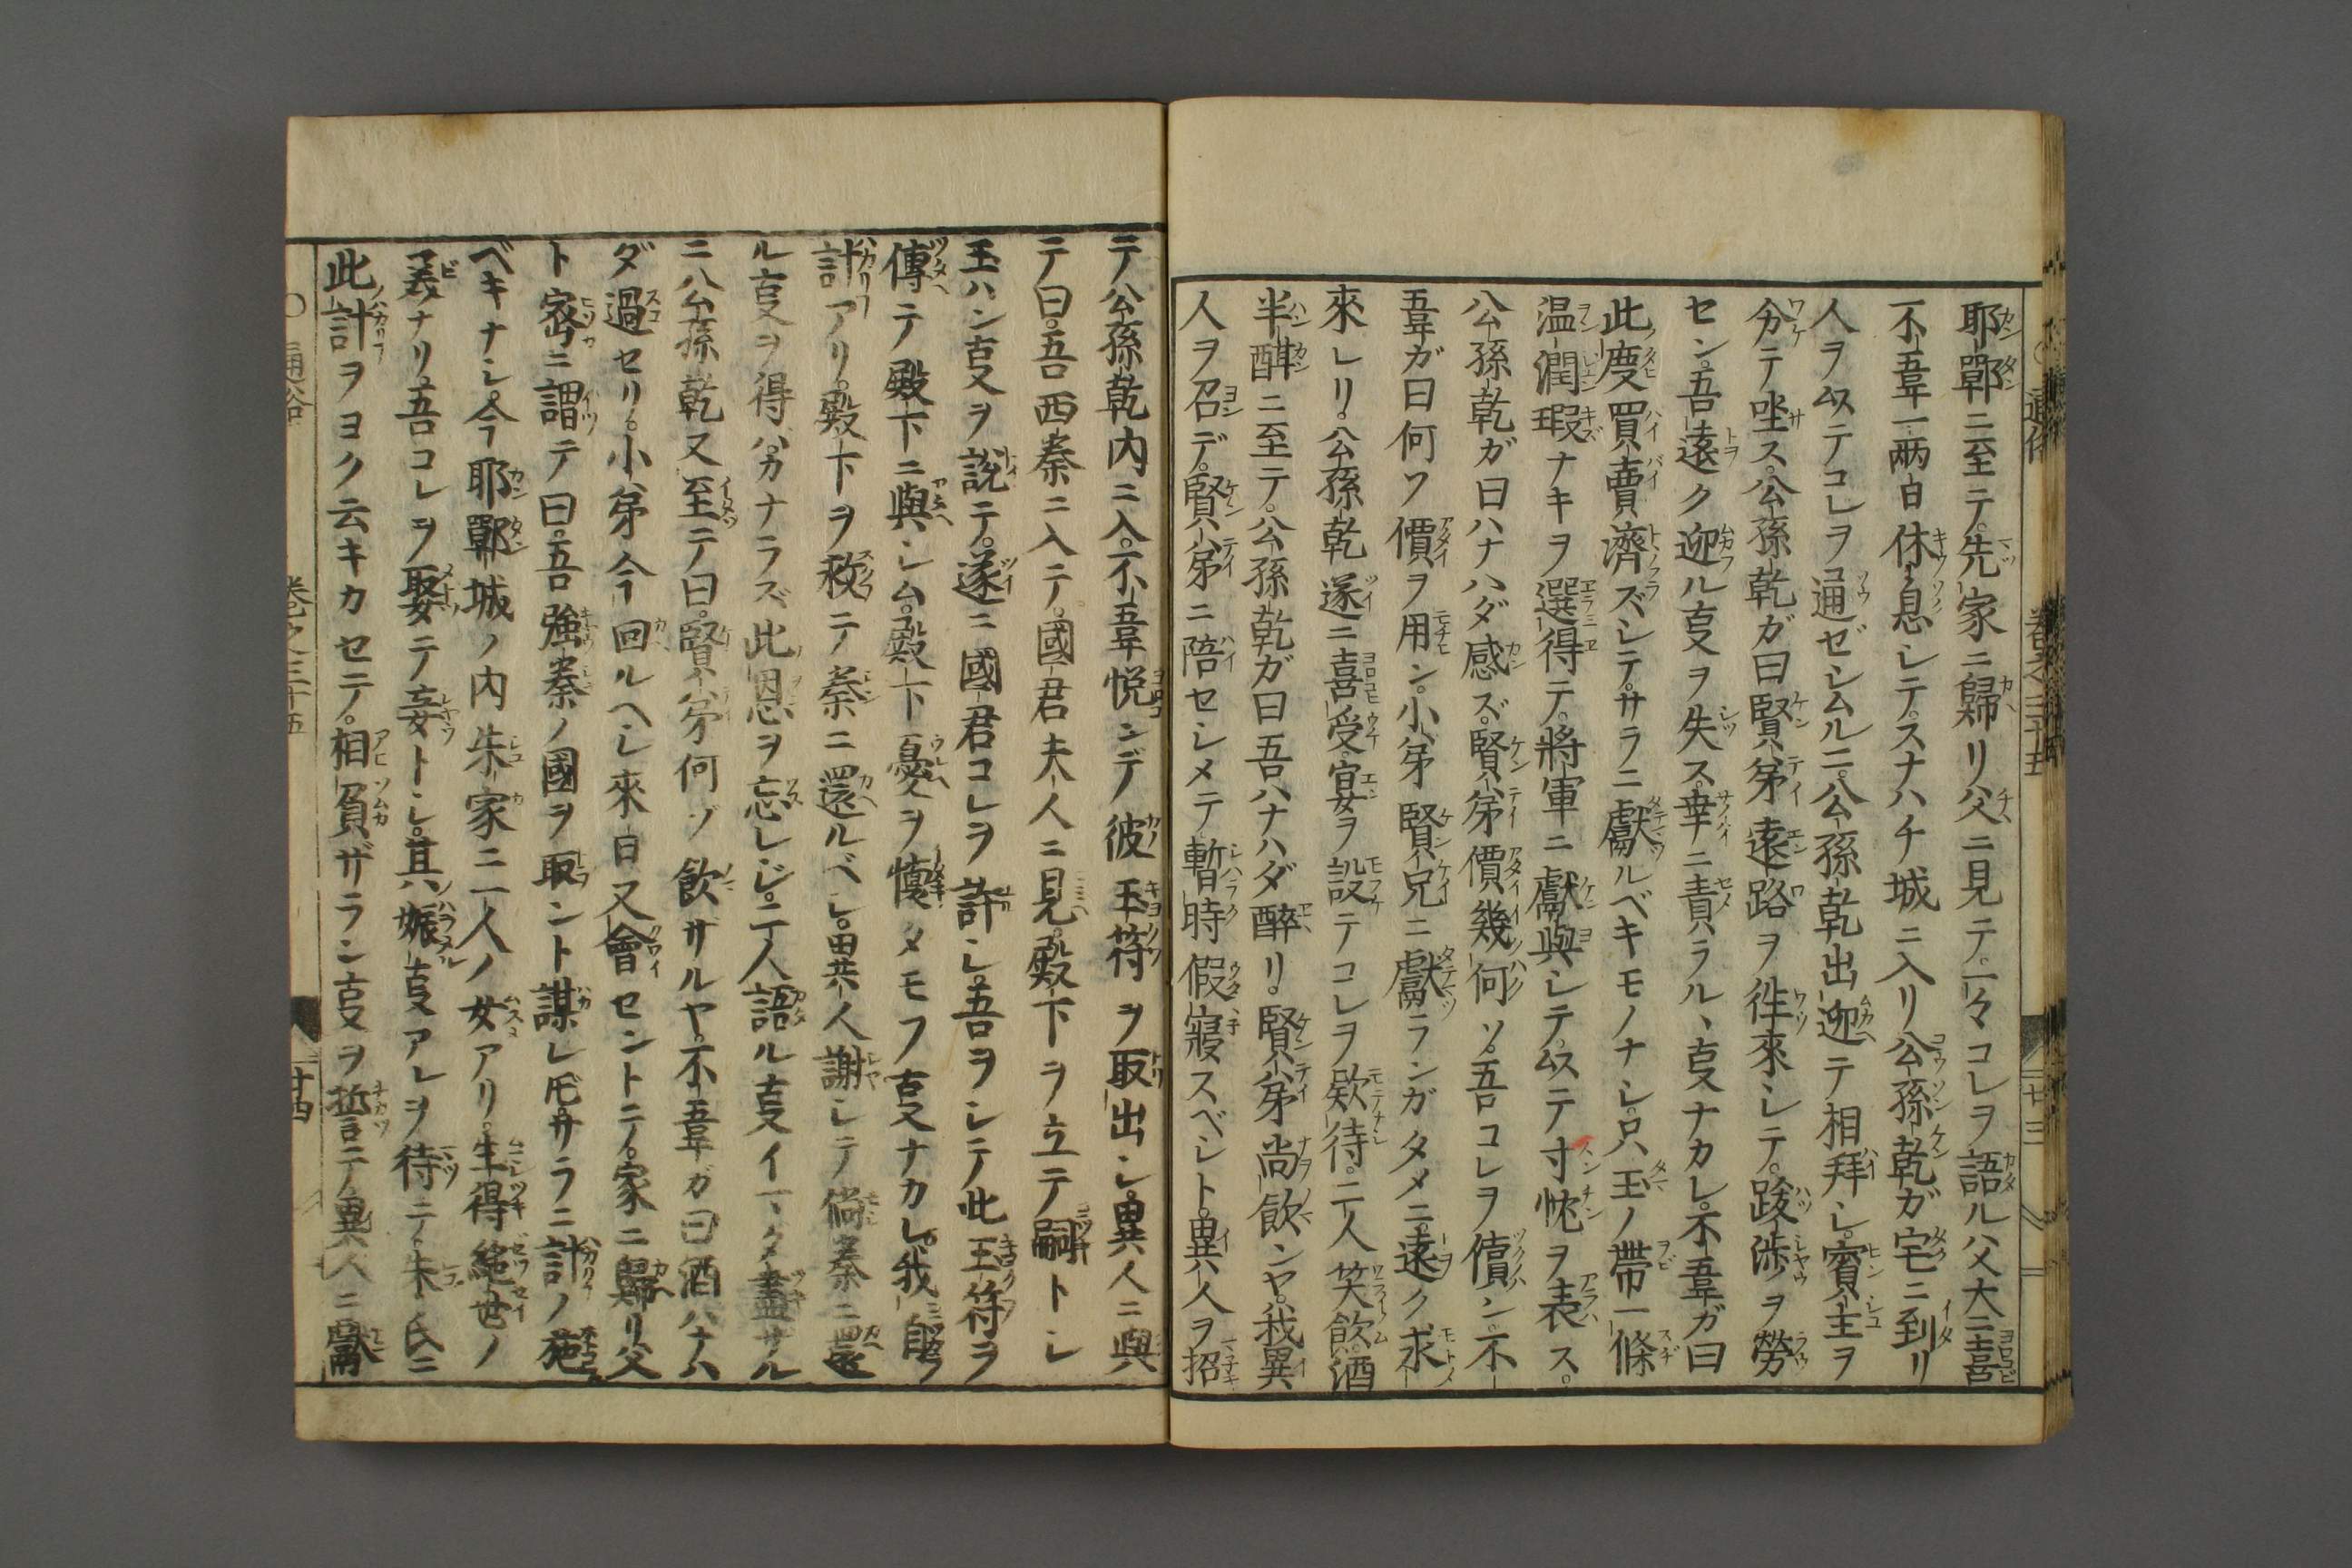 耶鄲ニ至テ。先家ニ歸リ父ニ見テ。一々コレヲ語ル父大ニ喜
不韋一両日休息シテ。スナハチ城ニ入リ公孫乾ガ宅ニ到リ
人ヲ以テコレヲ通ゼシムルニ。公孫乾出迎テ相拜シ。賓主ヲ
分テ坐ス。公孫乾ガ曰賢弟遠路ヲ徃來シテ。跋渉ヲ勞
セン。吾遠ク迎ル𫝕ヲ失ス。幸ニ責ラル丶𫝕ナカレ。不韋ガ曰
此度買賣濟ズシテ。サラニ獻ルベキモノナシ。只玉ノ帶一條
温潤瑕ナキヲ選得テ。將軍ニ獻與シテ。以テ寸忱ヲ表ス。
公孫乾ガ曰ハナハダ感ズ。賢弟價幾何ソ。吾コレヲ償ン。不
韋ガ曰何ソ價ヲ用ン。小弟賢兄ニ獻ランガタメニ。遠ク求
來レリ。公孫乾遂ニ喜受宴ヲ設テコレヲ欵待。二人笑飲。酒
半酣ニ至テ。公孫乾ガ曰吾ハナハダ醉リ。賢弟尚飲ンヤ。我異
人ヲ召デ。賢弟ニ陪セシメテ暫時假寢スベシト。異人ヲ招
テ公孫乾内ニ入。不韋悦ンデ彼玉符ヲ取出シ。異人ニ與
テ曰。吾西秦ニ入テ。國君夫人ニ見。殿下ヲ立テ嗣トシ
玉ハン𫝕ヲ説テ。遂ニ國君コレヲ許シ。吾ヲシテ此玉符ヲ
傳テ殿下ニ與シム。殿下憂ヲ懷タモフ𫝕ナカレ。我自ラ
計アリ。殿下ヲ救テ秦ニ還ルベシ。異人謝シテ倘秦ニ還
ル𫝕ヲ得バ。カナラズ此恩ヲ忘レジ。二人語ル𫝕イマタ盡サル
ニ公孫乾又至テ曰。賢弟何ゾ飲サルヤ。不韋ガ曰酒ハナハ
ダ過セリ。小弟今回ルヘシ來日又會セントテ。家ニ歸リ父
ト密ニ謂テ曰。吾強秦ノ國ヲ取ント謀レ𪜈。サラニ計ノ施
ベキナシ。今耶鄲城ノ内朱家ニ一人ノ女アリ。生得絶世ノ
美ナリ。吾コレヲ娶テ妾トシ。其娠𫝕アレヲ待テ。朱氏ニ
此計ヲヨク云キカセテ。相負ザラン𫝕ヲ誓テ異人ニ獻
通俗 卷之三十五 廿三
通俗 卷之三十五 廿四